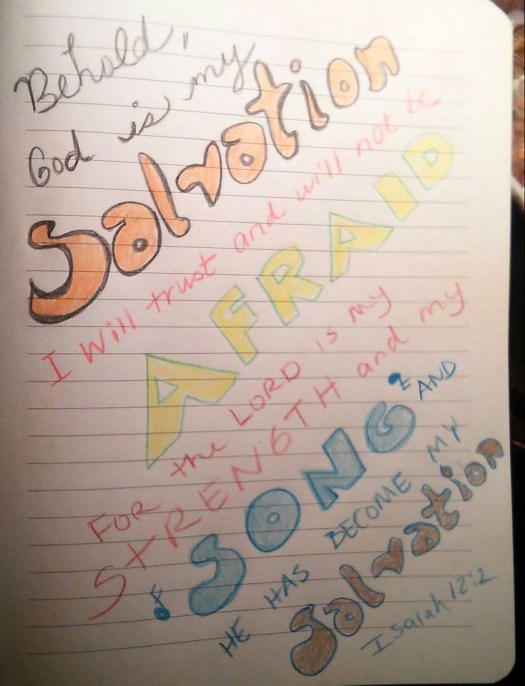 Behold,
God is my
Salvation
I will trust and will not be
AFRAID
FOR the LORD is my
STRENGTH and my
SONG AND
HE HAS BECOME MY
Salvation
Isaiah 12:2